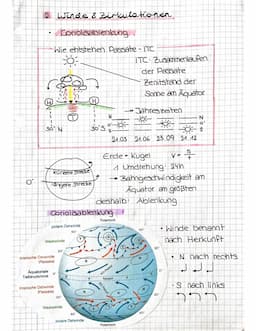 2. Winde & Zirkulationen
• Coriolisablenkung
Wie entstehen Passate - ITC
ITC - Zusammenlaufen
der Passate
Zenitstand der
Sonne am Äquator
H
H
T
30° N
30° S
→ Jahreszeiten
N
S
21.03 21.06 23.09 21.12
Erde = Kugel v = s/t
1 Umdrehung 24h
→ Bahngeschwindigkeit am
Äquator am größten
deshalb: Ablenkung
kürzere Strecke
längere Strecke
0°
Coriolisablenkung
polare Ostwinde
Westwinde
tropische Ostwinde
(Passate)
Äquatoriale
Tiefdruckrinne
tropische Ostwinde
(Passate)
Westwinde
polare Ostwinde
• Winde benannt
nach Herkunft
• N nach rechts
• S nach links